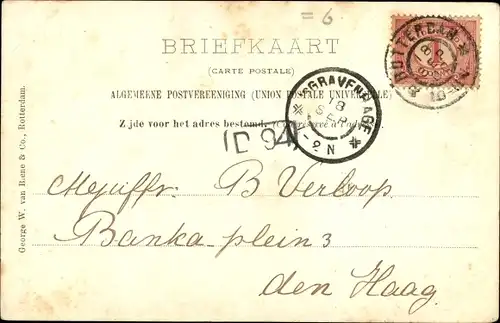 = 6
BRIEFKAART
(CARTE POSTALE)
ALGEMEENE POSTVEREENIGING (UNION POSTALE UNIVERSELLE)
Zijde voor het adres bestemd.
ROTTERDAM
'SGRAVENHAGE
18
SEP
-2N
(D 94)
Mejuffr. B Verloop.
Bankaplein 3
den Haag.
George W. van Rome & Co., Rotterdam.